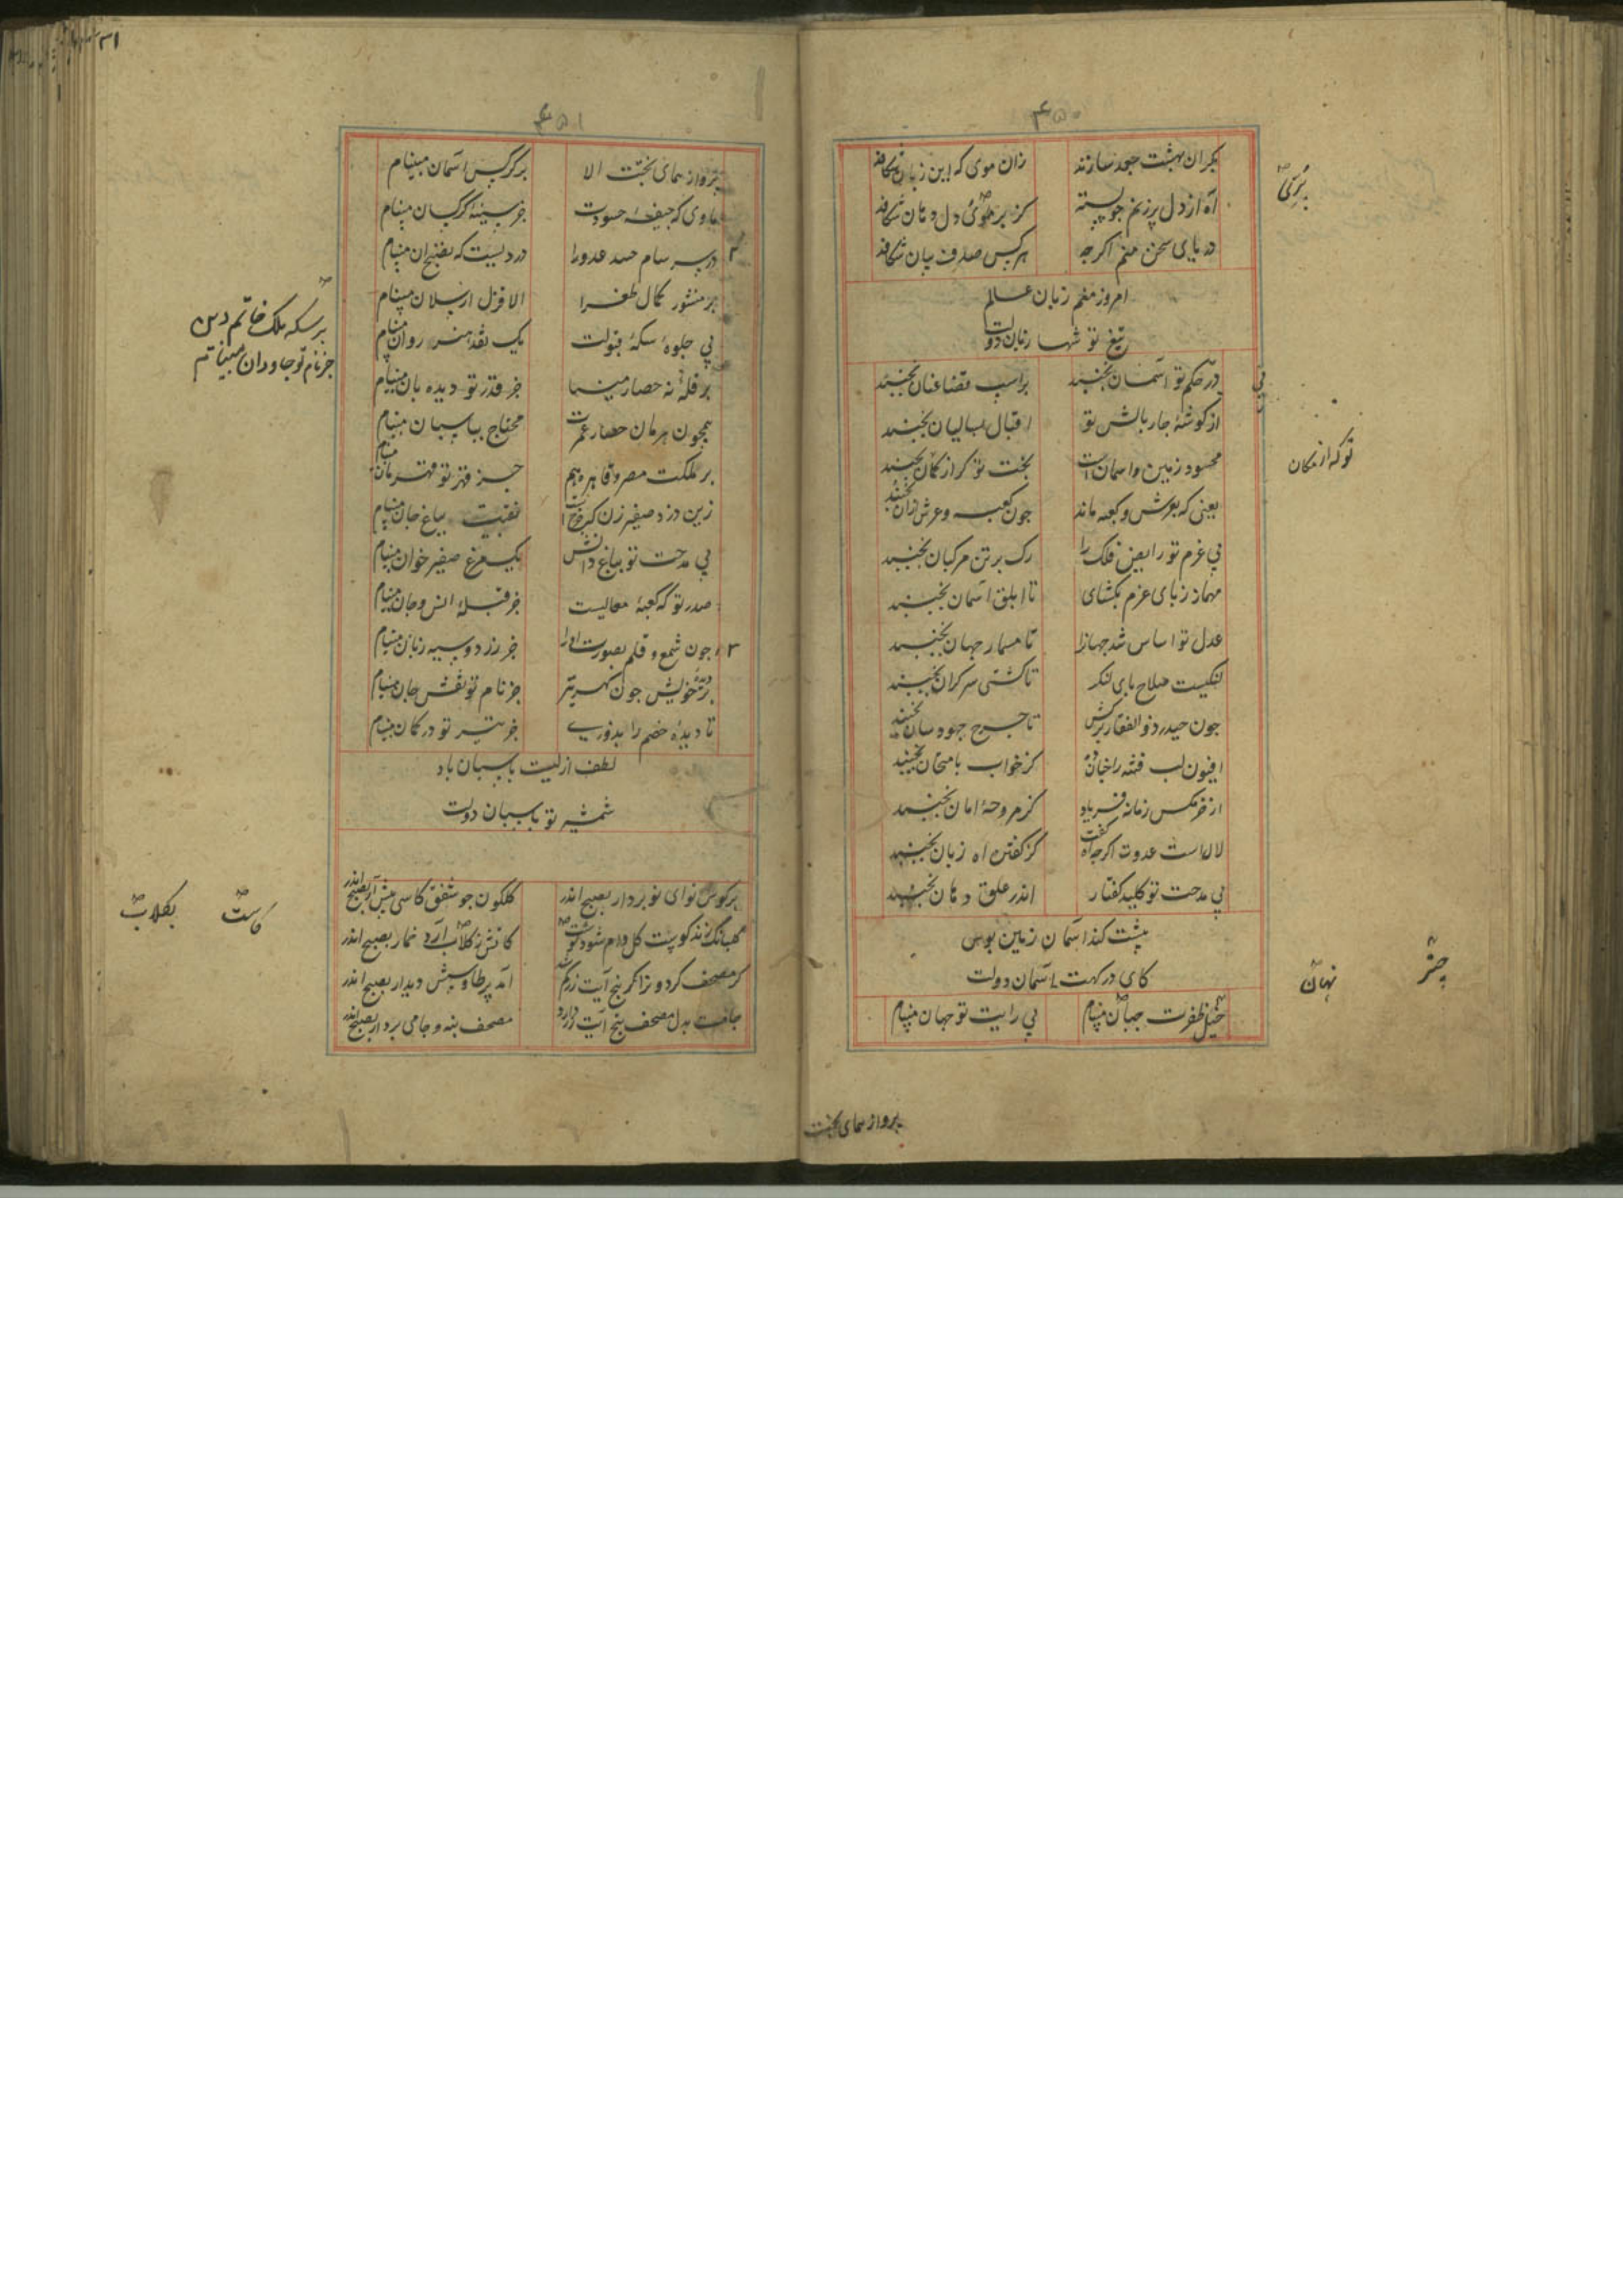 ۴۵۰
بکران بهشت جعد سازند زان موی که این زبان شکافد
آه از دل پر زنم چو پسته کز بر موی دل دهان شکافد
دریای سخن منم اگر چه هر کس صدف بیان شکافد
امروز منم زبان عالم
تیغ تو شها زبان دولت
در حکم تو آسمان نجنبد بر اسب قضا عنان نجنبد
از کوشهٔ جار بالش تو اقبال بسالیان نجنبد
محسود زمین و اسمان است بخت تو کز از مکان نجنبد
یعنی که بعرش و کعبه ماند جون کعبه و عرش ازان نجنبد
بی عزم تو رایض فلک را رک بر تن مرکبان نجنبد
مهماز ز پای عزم بکشای تا ابلق آسمان نجنبد
عدل تو اساس شد جهانرا تا مسمار جهان نجنبد
لنکیست صلاح پای لنکر تا کشتی سرکران نجنبد
جون حیدر ذو الفقار برکش تا جرخ جهود سان نجنبد
افیون لب فتنه را جنان ده کز خواب بامتحان نجنبد
از خرمکس زمانه فریاد کز مروحهٔ امان نجنبد
لال است عدوت اکرجه اه کفت کز کفتن اه زبان نجنبد
بی مدحت تو کلید کفتار اندر غلق دهان نجنبد
پشت کند آسمان زمین بوس
کای درکهت آسمان دولت
خیل ظفرت جهان مبینام بی رایت تو جهان مبینام
پرواز همای بخت
توکه از مکان
نهان
چتر
۴۵۱
پرواز همای بخت الا بر کرکس آسمان مبینام
ماوی که جیفهٔ حسودت جز سینهٔ کرکسان مبینام
در سرسام حسد عدو را دردیست که نضج ان مبینام
بر منشور کمال طغرا الا قزل ارسلان مبینام
بی جلوهٔ سکهٔ قبولت یک نقد هنر روان مبینام
بر قلهٔ نه حصار مینا جز قدر تو دیده بان مبینام
همجون هرمان حصار عمرت محتاج بپاسبان مبینام
بر مملکت مصر و قاهره هم جز قهر تو قهرمان مبینام
زین دزد صفیر زن که جرخ است نقبیت بباغ جان مبینام
بی مدحت تو بباغ دانش یک مرغ صفیر خوان مبینام
صدر تو که کعبهٔ معالیست جز قبلهٔ انس و جان مبینام
جون شمع و قلم بصورت او را جز زرد و سیه زبان مبینام
خویش جون جز نام تو نقش جان مبینام
تا دیدهٔ خصم را بدوزی جز تیر تو در کمان مبینام
لطف ازلیت پاسبان باد
شمشیر تو پاسبان دولت
نوای نو بردار بصبح اندر کلکون جو شفق کاسی پیش آر بصبح اندر
کلاب آرد خمار بصبح اندر
کر مصحف پنج آیت آمد دیدار بصبح اندر
مصحف پنج آیت مصحف بنه و جامی بردار بصبح اندر
بر سکه ملک خاتم دین
جز نام تو جاودان مبینام
بکلاب
۳۱